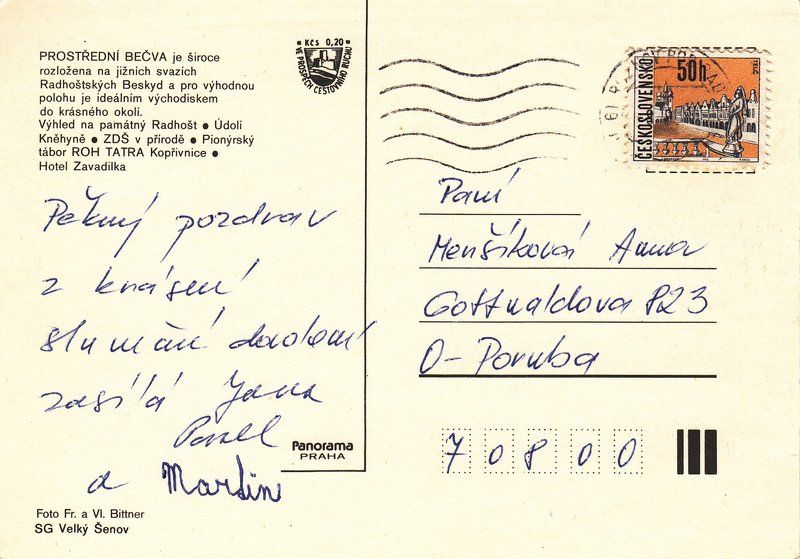 PROSTŘEDNÍ BEČVA je široce
rozložena na jižních svazích
Radhoštských Beskyd a pro výhodnou
polohu je ideálním východiskem
do krásného okolí.
Výhled na památný Radhošt ● Údolí
Kněhyně ● ZDŠ v přírodě ● Pionýrský
tábor ROH TATRA Kopřivnice ●
Hotel Zavadilka
Kčs 0,20
VE PROSPĚCH CESTOVNÍHO RUCHU
50h
ČESKOSLOVENSKO
TELČ
Pěkný pozdrav
z krásení
sluněčné dovolené
zasílá Jana
Pavel
a Martin
Paní
Menšíková Anna
Gottwaldova 823
O-Poruba
70800
Panorama
PRAHA
Foto Fr. a Vl. Bittner
SG Velký Šenov